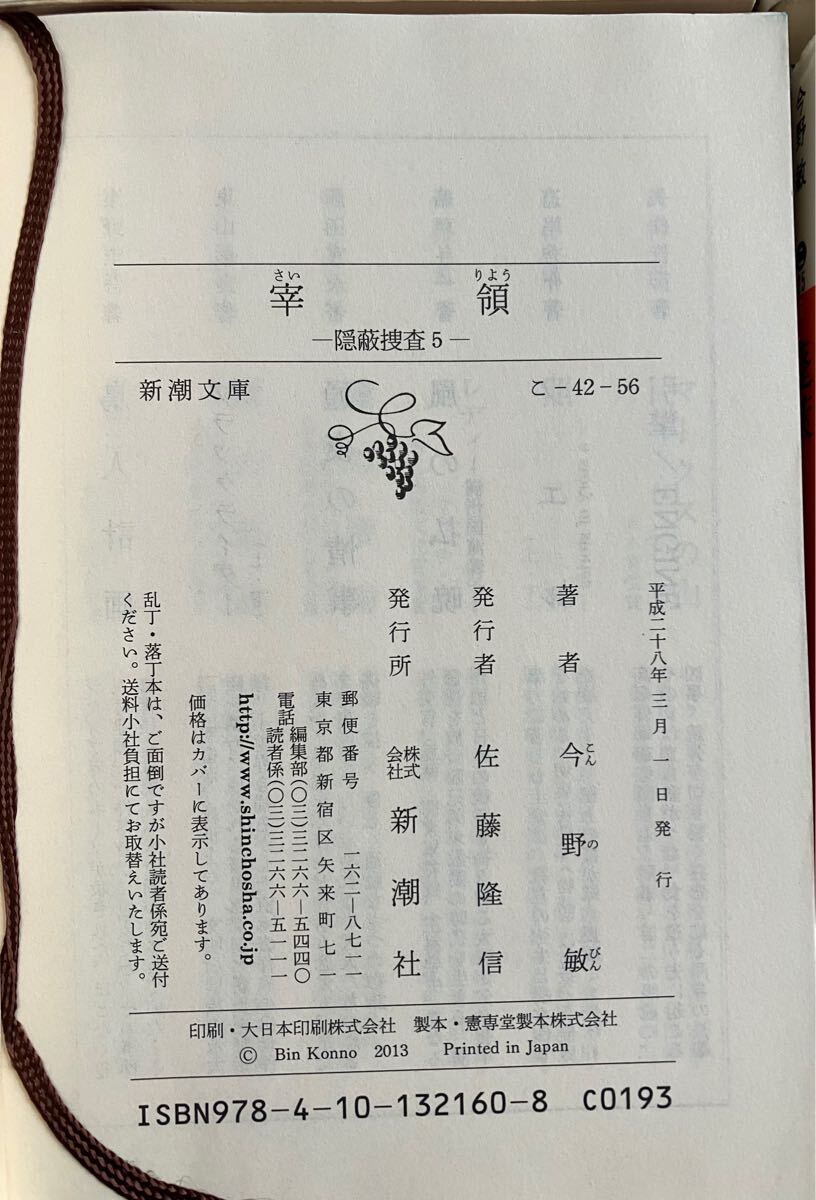 さい りよう
宰領
―隠蔽捜査5―
新潮文庫 こ-42-56
平成二十八年三月一日発行
著者 今野敏
こん の びん
発行者 佐藤隆信
発行所 株式会社 新潮社
郵便番号 一六二―八七一一
東京都新宿区矢来町七一
電話 編集部(〇三)三二六六―五四四〇
読者係(〇三)三二六六―五一一一
http://www.shinchosha.co.jp
価格はカバーに表示してあります。
乱丁・落丁本は、ご面倒ですが小社読者係宛ご送付
ください。送料小社負担にてお取替えいたします。
印刷・大日本印刷株式会社 製本・憲専堂製本株式会社
© Bin Konno 2013 Printed in Japan
ISBN978-4-10-132160-8 C0193
今野敏